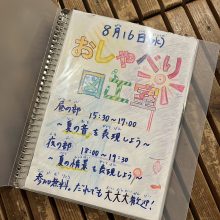 8月16日(水)
おしゃべり
図書室
昼の部 15:30~17:00
~夏の音を表現しよう~
夜の部 18:00~19:30
~夏の情景を表現しよう~
参加無料。だれでも大大大歓迎!